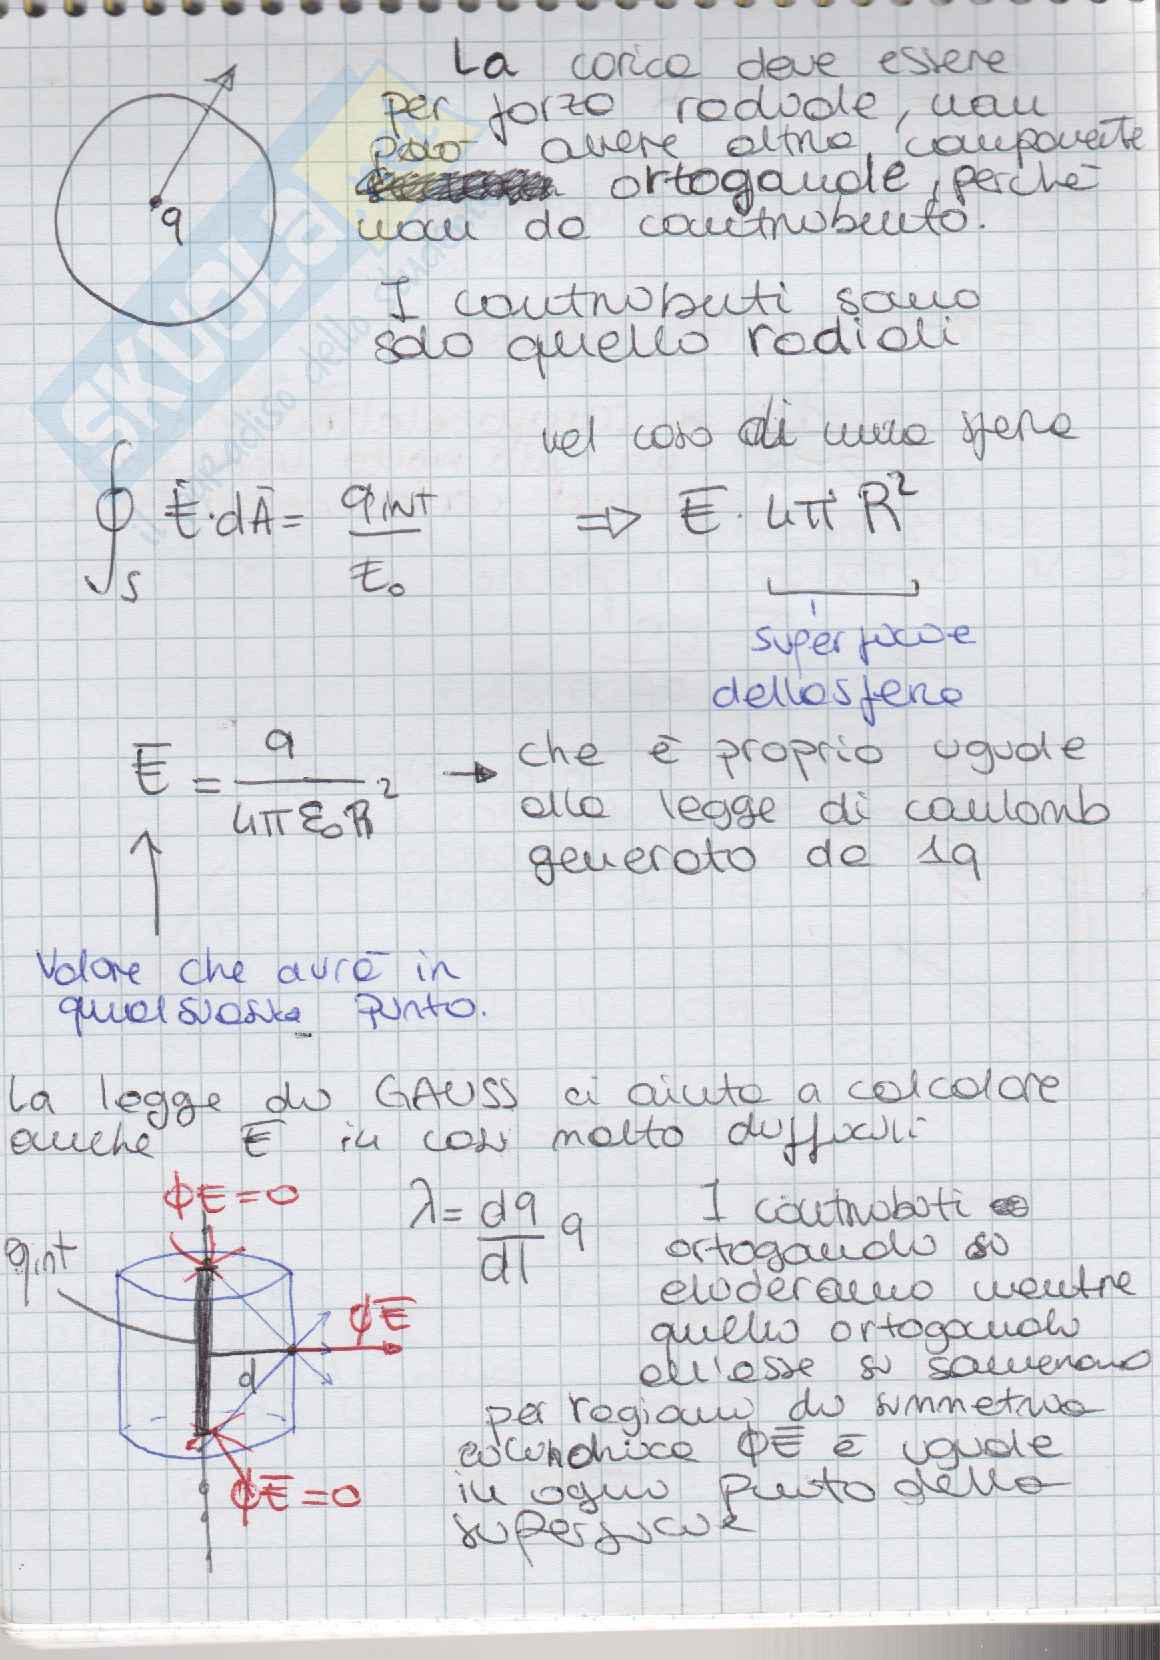 La carica deve essere
per forza radiale, non
può avere altra componente
ortogonale, perchè
non da contributo.
q
I contributi sono
solo quello radiali
nel caso di una sfera
∮s Ē·dĀ = qint/ε₀ ⇒ Ē · 4π R²
superficie
della sfera
Ē = q/4πε₀R² → che è proprio uguale
alla legge di coulomb
generato da 1q
Valore che avrà in
qualsiasi punto.
La legge di GAUSS ci aiuta a calcolare
anche Ē in casi molto difficili
ϕĒ=0
λ = dq/dl q
I contributi
ortogonali si
eluderanno mentre
quelli ortogonali
all'asse si sommeranno
per ragioni di simmetria
cilindrica ϕĒ è uguale
in ogni punto della
superficie
qint
ϕĒ
d
ϕĒ=0
SKUOLA
il paradiso dello